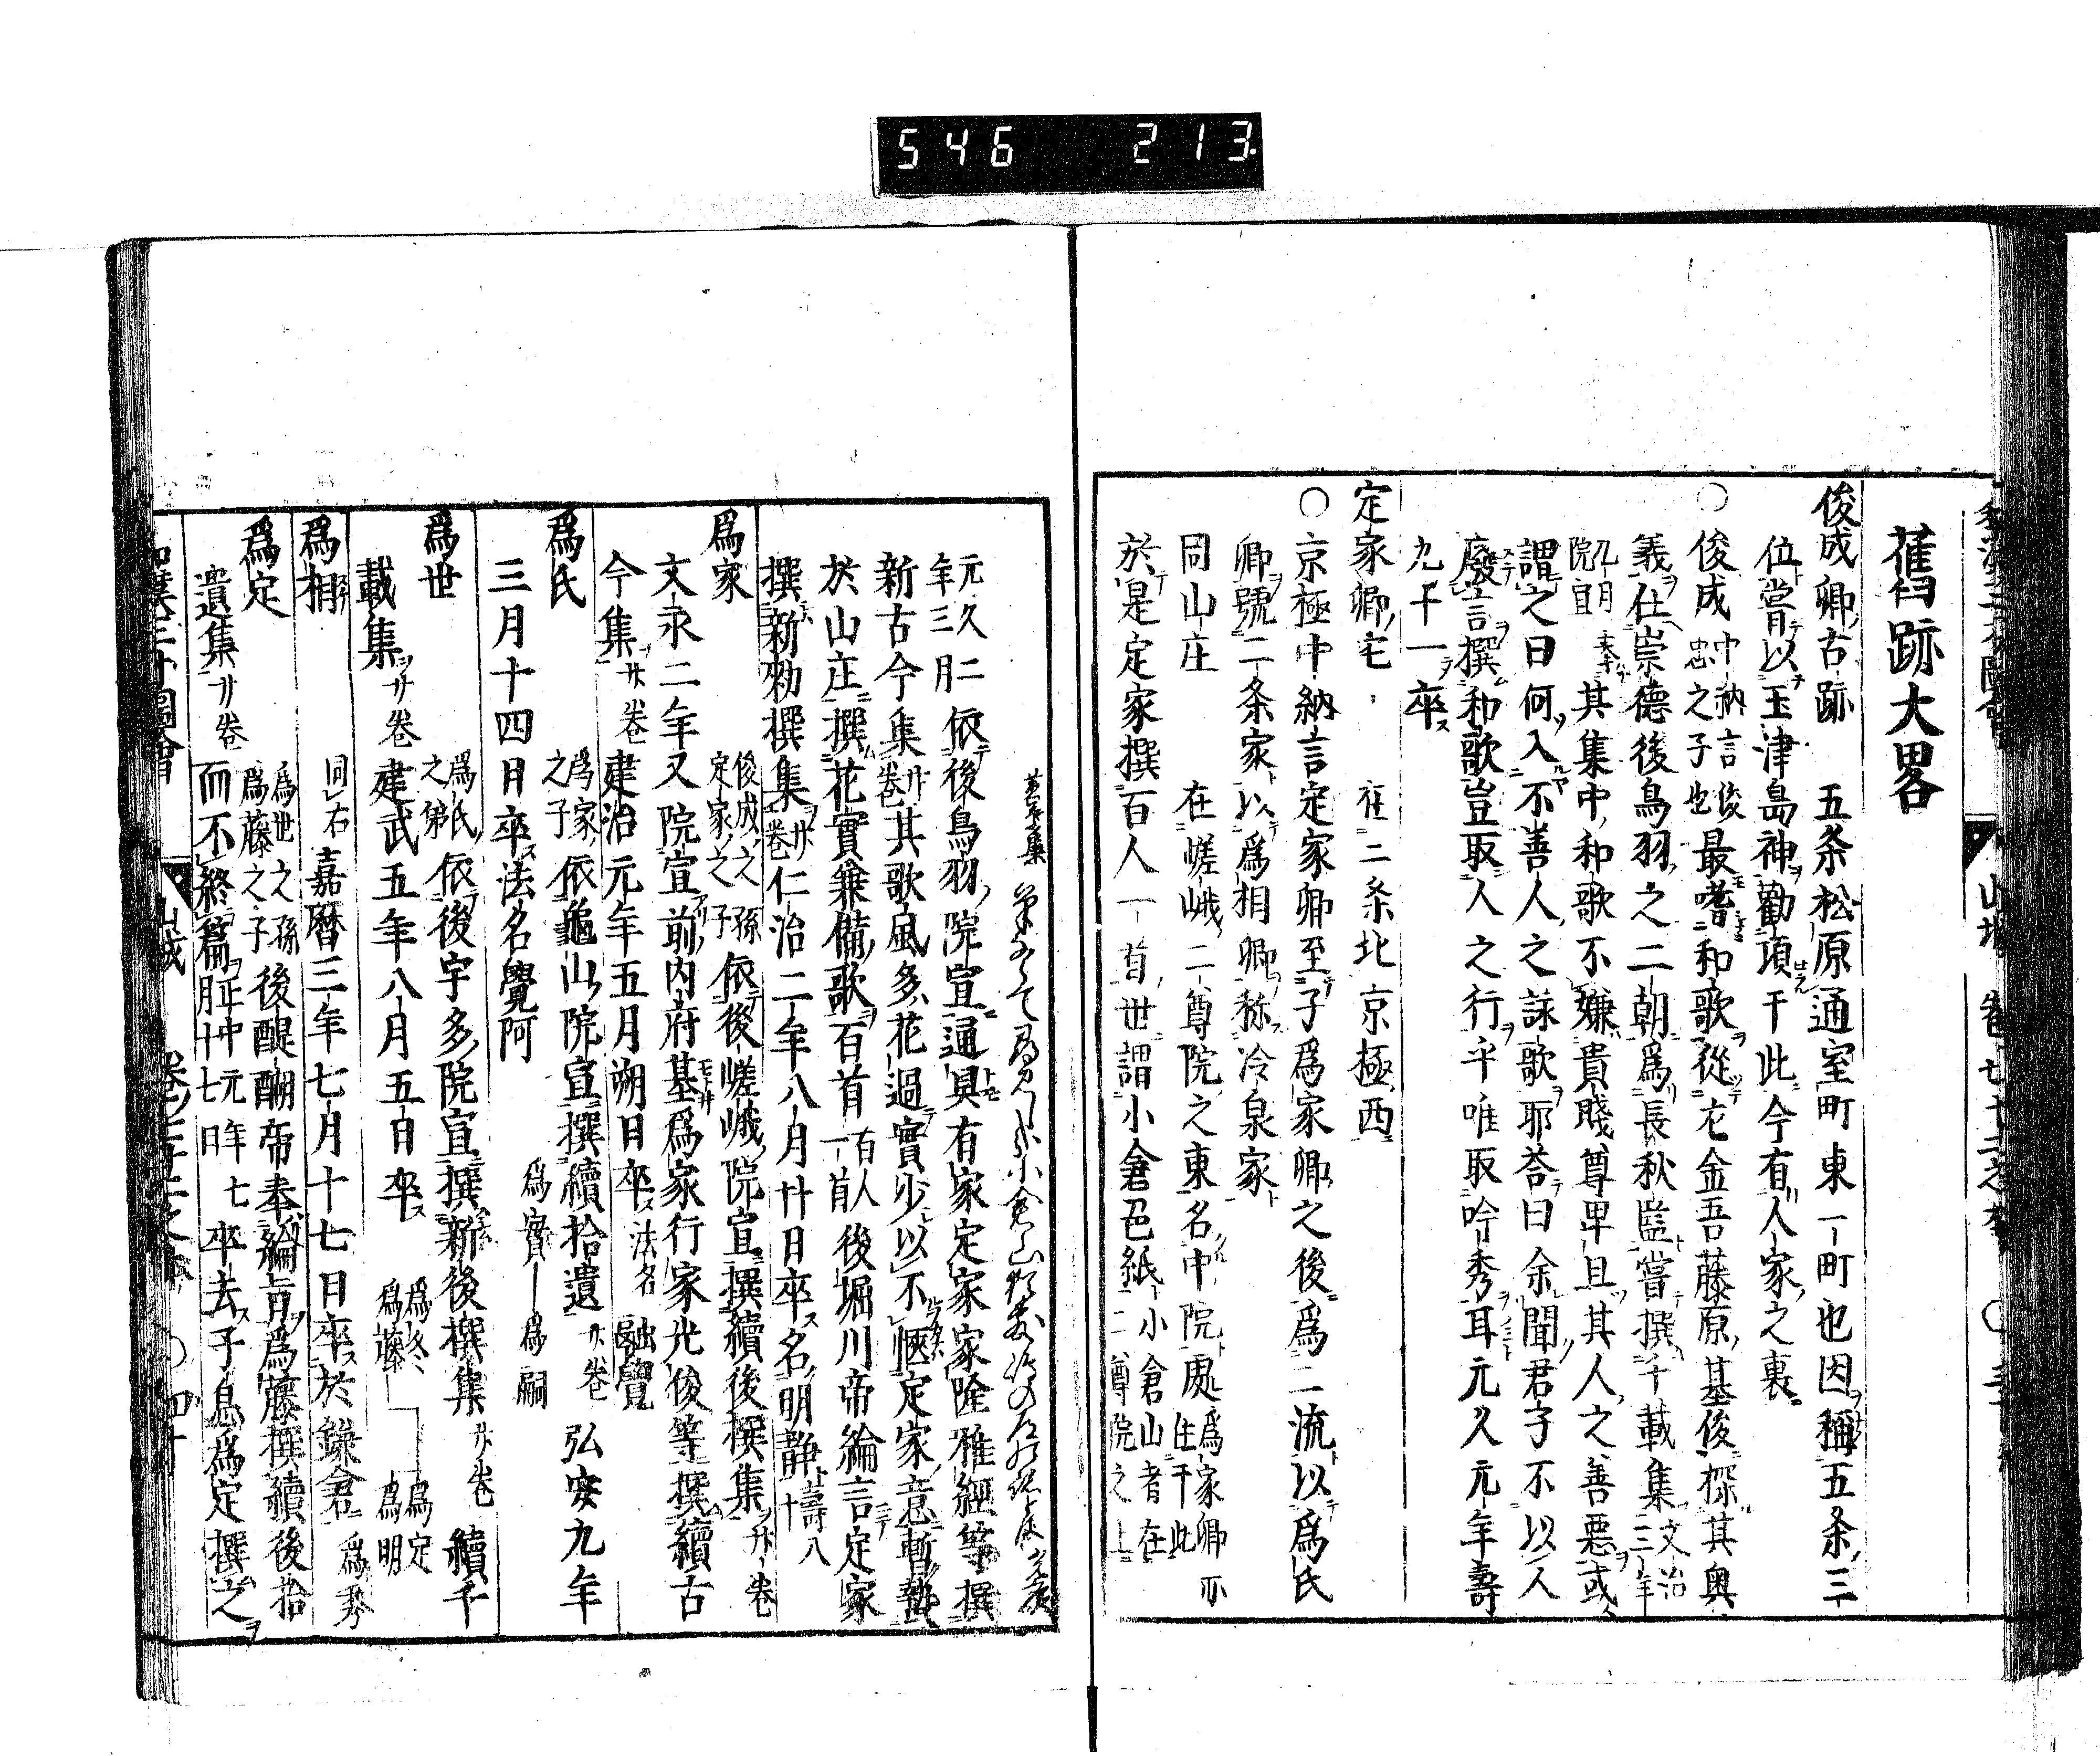 546 213.
舊跡大畧
俊成卿古跡 五条松原通室町東一町也因稱五条三
位嘗以玉津島神勸項于此今有人家之裏
○俊成 中納言俊忠之子也 最嗜和歌從左金吾藤原基俊探其奥
義仕崇德後鳥羽之二朝爲長秋監嘗撰千載集 文治三年
九月院宣 奉 其集中和歌不嫌貴賤尊卑且其人之善惡或
謂之曰何入不善人之詠歌耶荅曰余聞君子不以人
廢言撰和歌豈取人之行乎唯取吟秀耳元久元年壽
九十一卒
定家卿宅 在二条北京極西
○京極中納言定家卿至子爲家卿之後爲二流以爲氏
卿號二条家以爲相卿称冷泉家
同山庄 在嵯峨二尊院之東名中院處 爲家卿亦住于此
於是定家撰百人一首世謂小倉色紙 小倉山者在二尊院之上
元久二年三月 依後鳥羽院宣通具有家定家家隆雅經等撰
新古今集 廾卷 其歌風多花過實少以不愜定家意暫熱
於山庄撰花實兼備歌百首 百人一首 後堀川帝綸言定家
撰新勅撰集 廾卷 仁治二年八月廿日卒名明静 壽八十
爲家 俊成之孫定家之子 依後嵯峨院宣撰續後撰集 廾卷
文永二年又院宣前内府基爲家行家光俊等撰續古
今集 廾卷 建治元年五月朔日卒 法名 融覺
爲氏 爲家之子 依龜山院宣撰續拾遺 廾卷 弘安九年
三月十四日卒法名覺阿 爲實 爲嗣
爲世 爲氏之弟 依後宇多院宣撰新後撰集 廾卷 續千
載集 廾卷 建武五年八月五日卒 爲冬 爲藤 爲定 爲明
爲相 同右 嘉暦三年七月十七日卒於鎌倉 爲秀
爲定 爲世之孫爲藤之子 後醍醐帝奉綸旨爲藤撰續後拾
遺集 廾卷 而不終篇 正中元年七月十七日 卒去子息爲定撰之